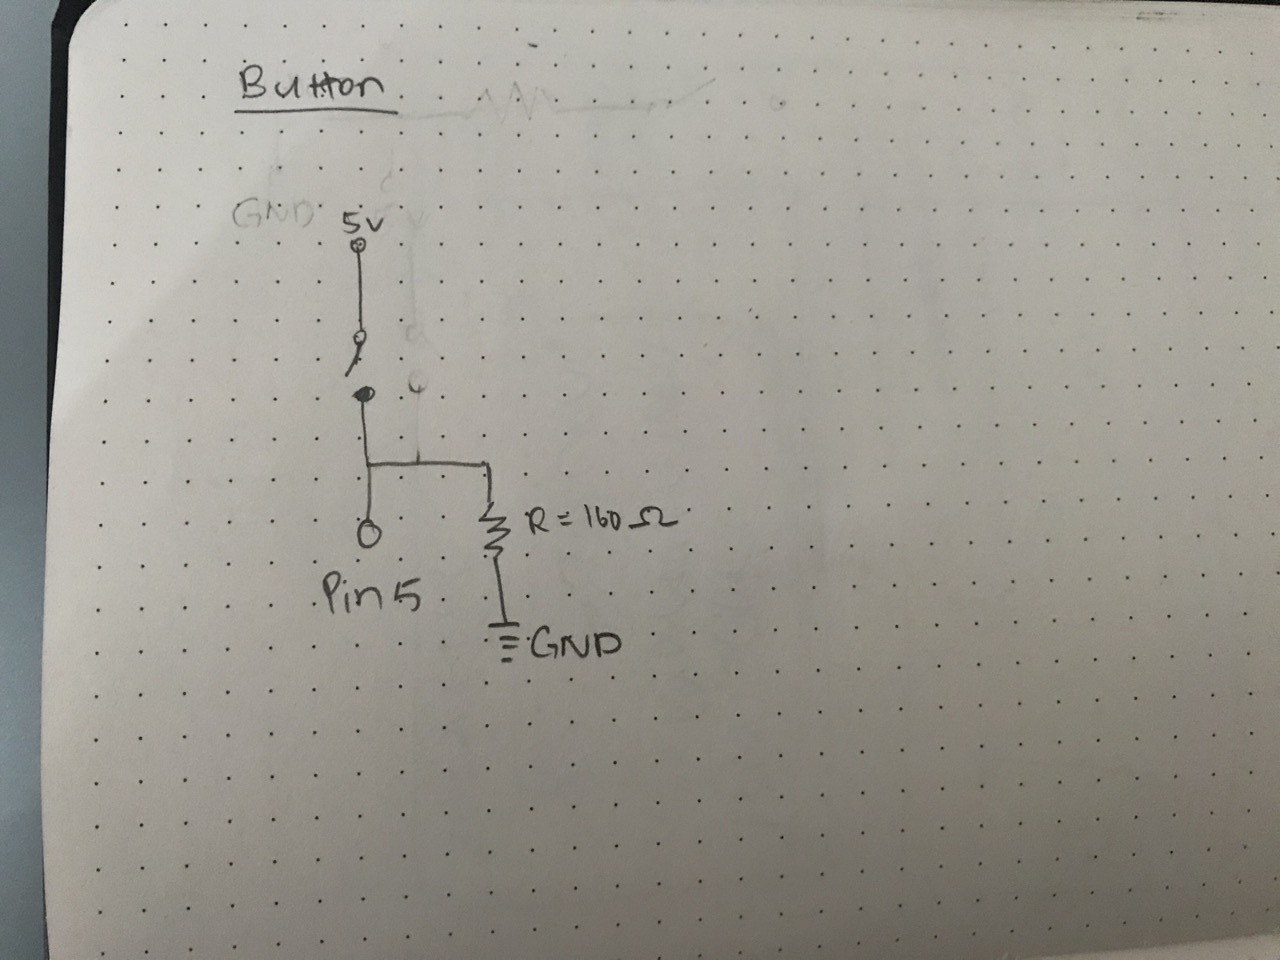 Button
GND
5v
R = 160 Ω
Pin 5
GND